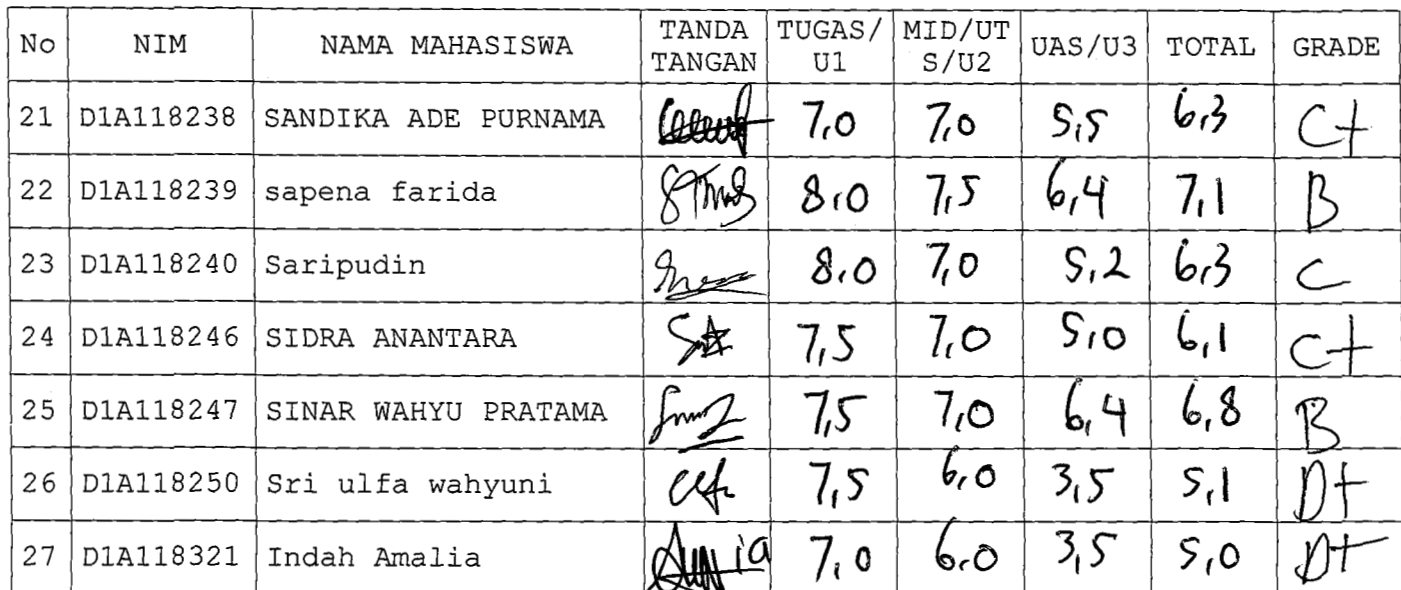 No NIM NAMA MAHASISWA TANDA TANGAN TUGAS/U1 MID/UTS/U2 UAS/U3 TOTAL GRADE
21 D1A118238 SANDIKA ADE PURNAMA 7,0 7,0 5,5 6,3 C+
22 D1A118239 sapena farida 8,0 7,5 6,4 7,1 B
23 D1A118240 Saripudin 8,0 7,0 5,2 6,3 C
24 D1A118246 SIDRA ANANTARA 7,5 7,0 5,0 6,1 C+
25 D1A118247 SINAR WAHYU PRATAMA 7,5 7,0 6,4 6,8 B
26 D1A118250 Sri ulfa wahyuni 7,5 6,0 3,5 5,1 D+
27 D1A118321 Indah Amalia 7,0 6,0 3,5 5,0 D+